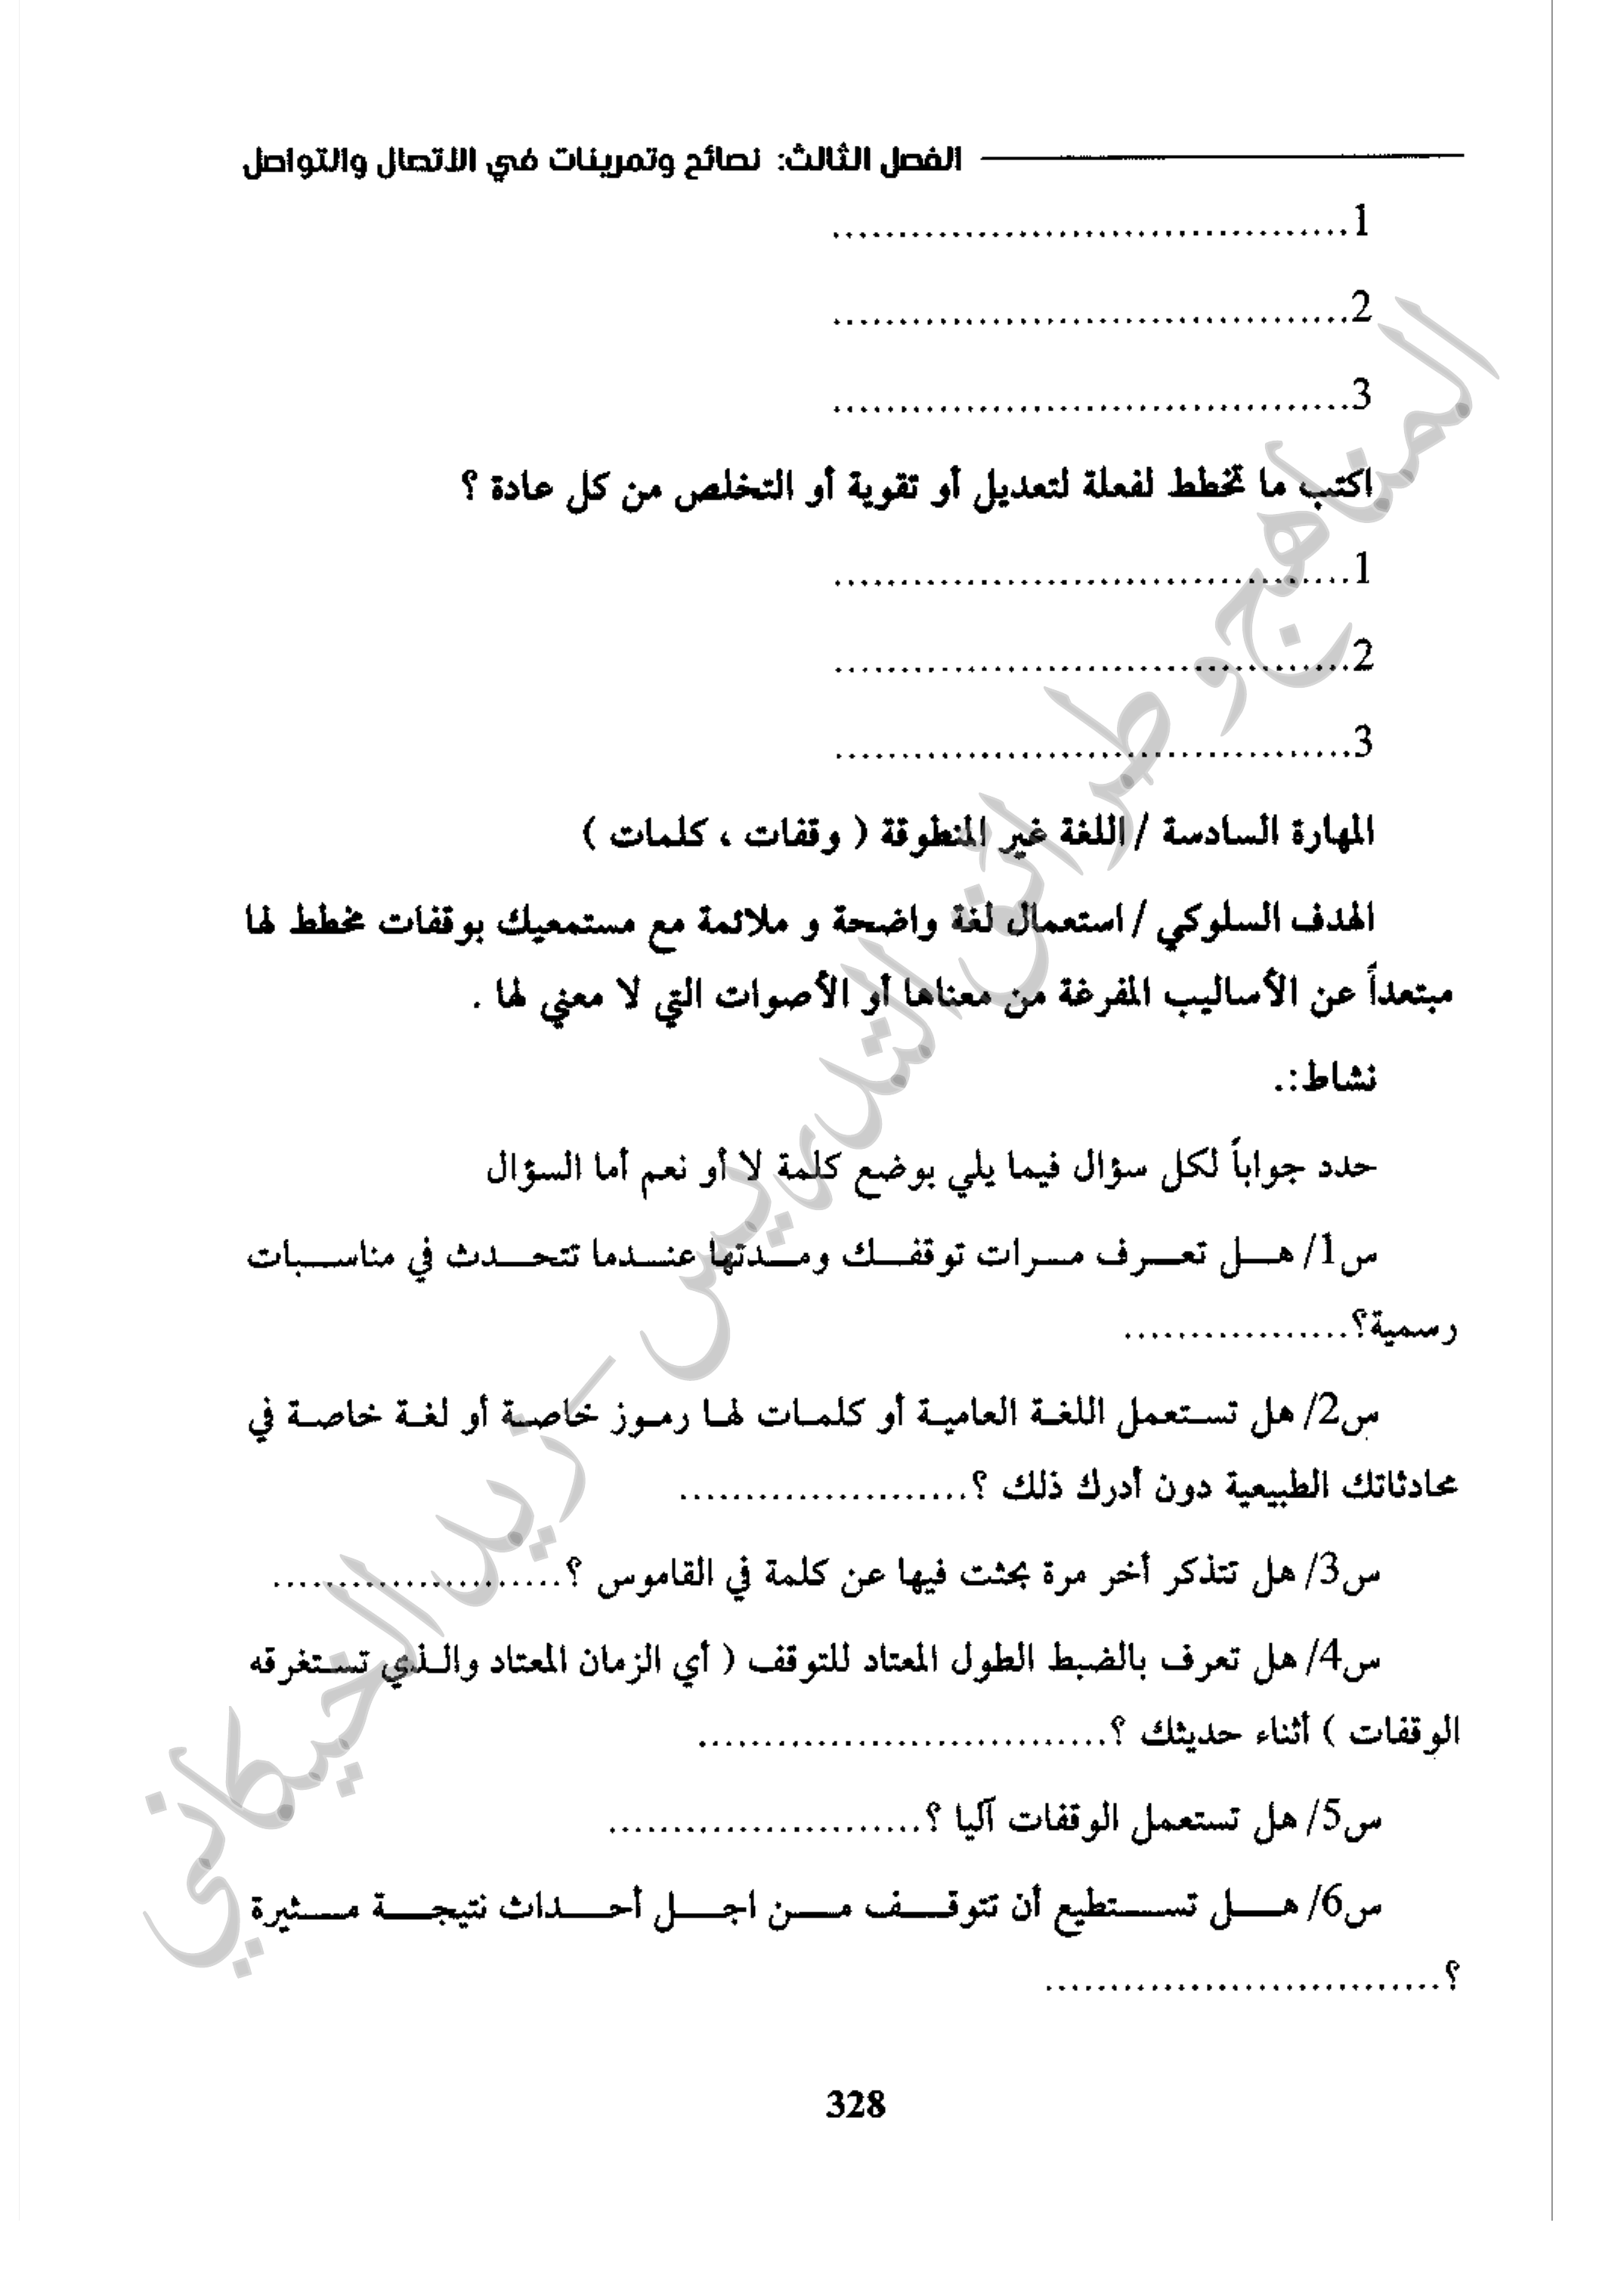 الفصل الثالث: نصائح وتمرينات في الاتصال والتواصل
1.......................................
2.......................................
3.......................................
اكتب ما تخطط لفعلة لتعديل أو تقوية أو التخلص من كل عادة ؟
1.......................................
2.......................................
3.......................................
المهارة السادسة / اللغة غير المنطوقة ( وقفات ، كلمات )
الهدف السلوكي / استعمال لغة واضحة و ملائمة مع مستمعيك بوقفات مخطط لها
مبتعداً عن الأساليب المفرغة من معناها أو الأصوات التي لا معني لها .
نشاط:.
حدد جواباً لكل سؤال فيما يلي بوضع كلمة لا أو نعم أما السؤال
س1/ هل تعرف مرات توقفك ومدتها عندما تتحدث في مناسبات
رسمية؟.................
س2/ هل تستعمل اللغة العامية أو كلمات لها رموز خاصة أو لغة خاصة في
محادثاتك الطبيعية دون أدرك ذلك ؟......................
س3/ هل تتذكر أخر مرة بحثت فيها عن كلمة في القاموس ؟......................
س4/ هل تعرف بالضبط الطول المعتاد للتوقف ( أي الزمان المعتاد والذي تستغرقه
الوقفات ) أثناء حديثك ؟..............................
س5/ هل تستعمل الوقفات آليا ؟........................
س6/ هل تستطيع أن تتوقف من اجل أحداث نتيجة مثيرة
؟..............................
328
المناهج وطرائق التدريس - زيد الخيكاني